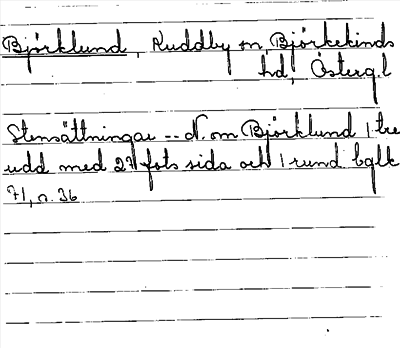 Björklund, Kuddby sn, Björkekinds
hd, Österg.l
Stensättningar -- N. om Björklund 1 tre
udd med 27 fots sida och 1 rund bglk
71, n. 36